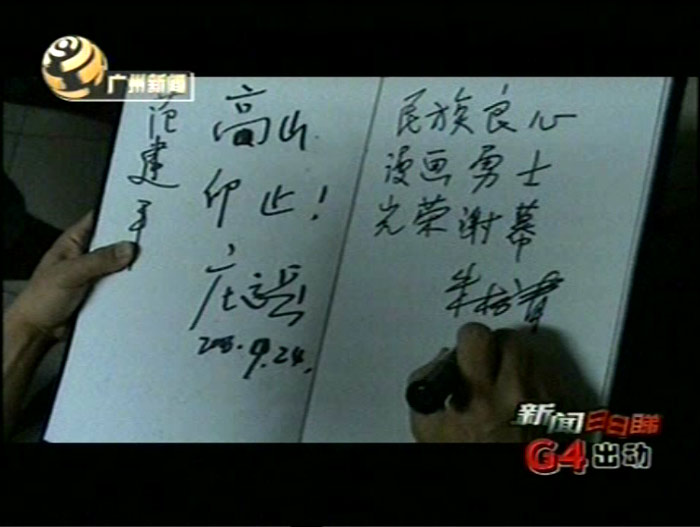 广州新闻
范建
高山
仰止!
2006.9.24.
民族良心
漫画勇士
光荣谢幕
新闻日日睇
G4出动